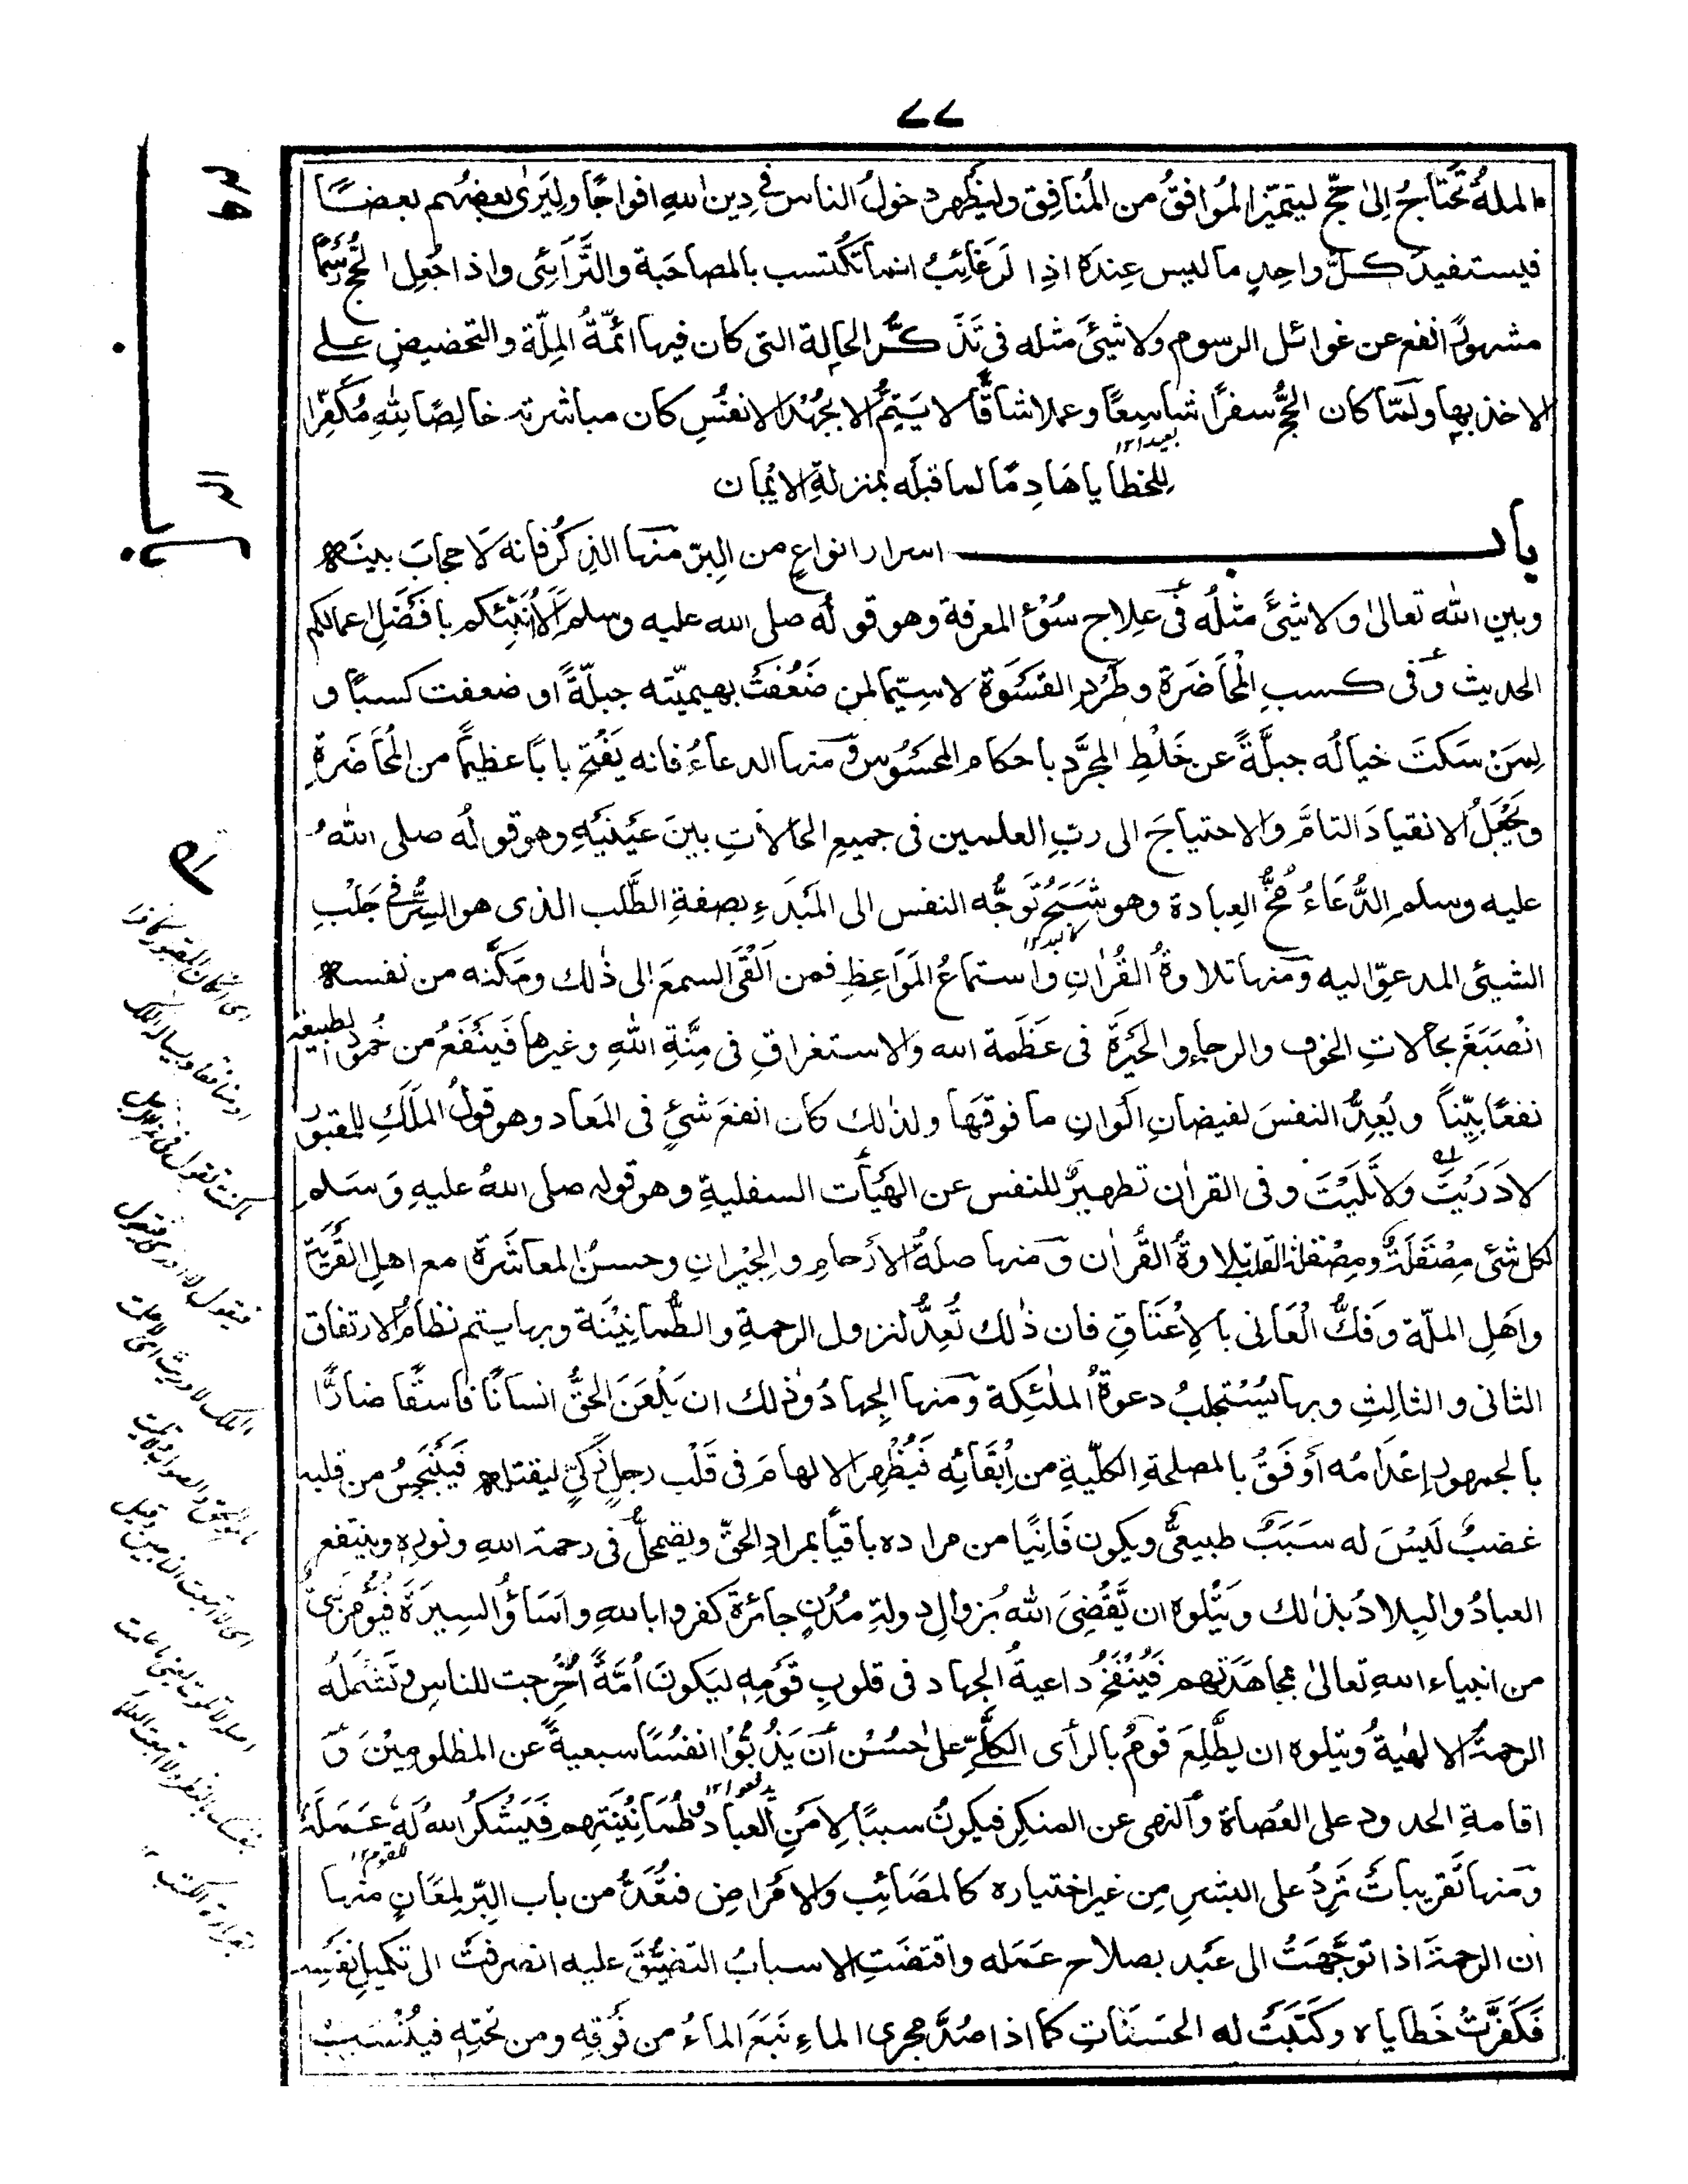 ٧٧
الملةُ تَحْتَاجُ اِلىٰ حجّ ليتميّز المُوافقُ من المُنافِق وليظهر دخولُ الناس فِي دِين اللهِ افواجًا ولِيَرىٰ بعضُهم بعضًا
فيستفيدَ كلُّ واحِدٍ ما ليس عِندهٗ اذِ الرَغائِبُ انما تكتسب بالمصاحَبة والتَّرَائِی واذا جُعِل الحَجّ رَسْمًا
مشهورًا نفع عن غوائل الرسوم ولا شيئَ مثله فى تَذَكُّر الحالة التى كان فيها ائمّةُ المِلّة والتحضيضِ على
الاخذ بها ولَمّا كان الحجُّ سفرًا شاسِعًا وعملا شاقًّا لا يَتِمُّ الا بجُهْد الانفُسِ كان مباشرته خالِصًا لِلّٰهِ مُكفِّرا
بعيد ١٢
لِلخطايا هَادِمًا لما قبلَه بمنزلةِ الايْمان
باب اسرار انواعٍ من البِرّ منها الذِكرُ فانه لَا حجابَ بينَهٗ
وبين الله تعالىٰ ولا شيئَ مثلُه فى علاج سُوْءِ المعرفة وهو قولُه صلى الله عليه وسلم اَلَا اُنَبِّئُكم بافضَلِ اعمالكم
الحديث وفى كسبِ المُحَاضَرة وطَرْدِ القسْوَة لا سِيّما لمن ضَعُفَتْ بهيميّته جبلّةً او ضعفت كسبًا و
لِمَنْ سَكتَ خيالُه جبلَّةً عن خَلْطِ المجرَّد باحكام المحسُوس ومنها الدعاءُ فانه يَفْتح بابًا عظيمًا من المُحَاضَرةِ
ويَجْعَلُ الانقيادَ التامَّ والاحتياجَ الى ربّ العلمين فى جميع الحَالاتِ بينَ عَيْنَيْهِ وهو قولُه صلى اللهُ
عليه وسلم الدُّعَاءُ مُخُّ العِبادة وهو شَبَحُ تَوَجُّه النفس الى المَبْدَءِ بصفةِ الطَّلَب الذى هو السِّرُّ فِي جَلْبِ
كالبد ١٢
الشيئى المدعوّ اليه ومنها تلاوةُ القُرْاٰنِ واستماعُ المَوَاعِظِ فمن اَلْقَى السمعَ الى ذٰلك ومَكَّنه من نفسهٖ
انْصَبَغَ بحالاتِ الخوف والرجاءِ والحَيْرَة فى عَظَمة الله والاستغراقِ فى مِنَّةِ اللهِ وغيرها فَيَنْفَعُ من خُمودِ الطبيعة
نفعًا بيّناً ويُعِدُّ النفسَ لفيضانِ اَلْوانِ ما فوقَها ولذٰلك كان انفعَ شئٍ فى المَعاد وهو قولُ المَلَكِ للمقبور
لا دَرَيْتَ ولا تَلَيْتَ وفى القراٰن تطهيرٌ للنفس عن الهَيْاٰت السفليةِ وهو قوله صلى اللهُ عليهِ وَسَلم
لكل شئى مِصْقَلَةٌ ومِصْقَلة القلب تلاوةُ القُراٰن ومنها صلةُ الأرْحامِ والجِيْرانِ وحسنُ المعاشَرة مع اهلِ القَرْيَة
واهْلِ الملّة وفَكُّ الْعَانِى بالاِعْتَاقِ فان ذٰلك تُعِدُّ لنزول الرحمةِ والطُّمانِيْنَة وبها يتم نظامُ الارتفاقِ
الثانى والثالِثِ وبها يُسْتَجلبُ دعوةُ الملٰئِكة ومنها الجِهادُ وذٰلك ان يَلْعَنَ الحقُّ انسانًا فاسقًا ضارًّا
بالجمهور إعْدَامُه أوفَقُ بالمصلحةِ الكلّيةِ من اِبْقَائِه فَيُظْهِر الالهامَ فى قَلْب رجلٍ زَكِيٍّ ليقتلهٗ فَيَنْبَجِسُ من قلبه
غضبٌ لَيْسَ له سَبَبٌ طبيعىٌّ ويكون فَانِيًا من مراده باقياً بمرادِ الحقّ ويضمحلُّ فى رحمة اللهِ ونورِه وينتفع
العبادُ والبِلادُ بذٰلك ويَتْلوه ان يَّقْضِىَ اللهُ بزوالِ دولةِ مُدُنٍ جائرةٍ كفروا باللهِ واسَاؤُ السِيرَةَ فَيُؤْمَر نَبىٌّ
من انبياء اللهِ تعالىٰ بمجاهَدَتِهم فَيُنْفَخُ داعيةُ الجهاد فى قلوبِ قَوْمِه ليَكونَ اُمَّةً اُخْرِجت للناسِ وتَشْمَلُه
الرحمةُ الالٰهيةُ ويتلوه ان يطَّلِعَ قومٌ بالرأى الكلّىِّ علىٰ حسُنِ أن يَذُبُّوْا انفسًا سبعيةً عن المظلومِيْنَ و
يدفعوا ١٢
اقامةِ الحدود على العُصَاة والنهى عن المنكِر فيكونُ سببًا لِاَمْنِ العباد وطُمَانِيْنَتِهم فَيَشْكُرُ اللهُ لَهٗ عَمَلَهٗ
للقوم ١٢
ومنها تَقريباتٌ تَرِدُ على البشرِ مِن غير اختياره كالمصَائِب والامْراضِ فتُعَدُّ من باب البِرّ لِمعَانٍ منها
ان الرحمةَ اذا توجَّهَتْ الى عَبْد بصلاح عَمَله واقتضَتِ الاسبابُ التضيُّقَ عليه انصرفتْ الى تكميلِ نفسِه
فَكفّرَتْ خَطاياه وكُتبَتْ له الحسَنَاتِ كما اذا صُدَّ مجرى الماءِ نَبَعَ الماءُ من فَوْقِه ومن تحتِه فيُنْسَبُ